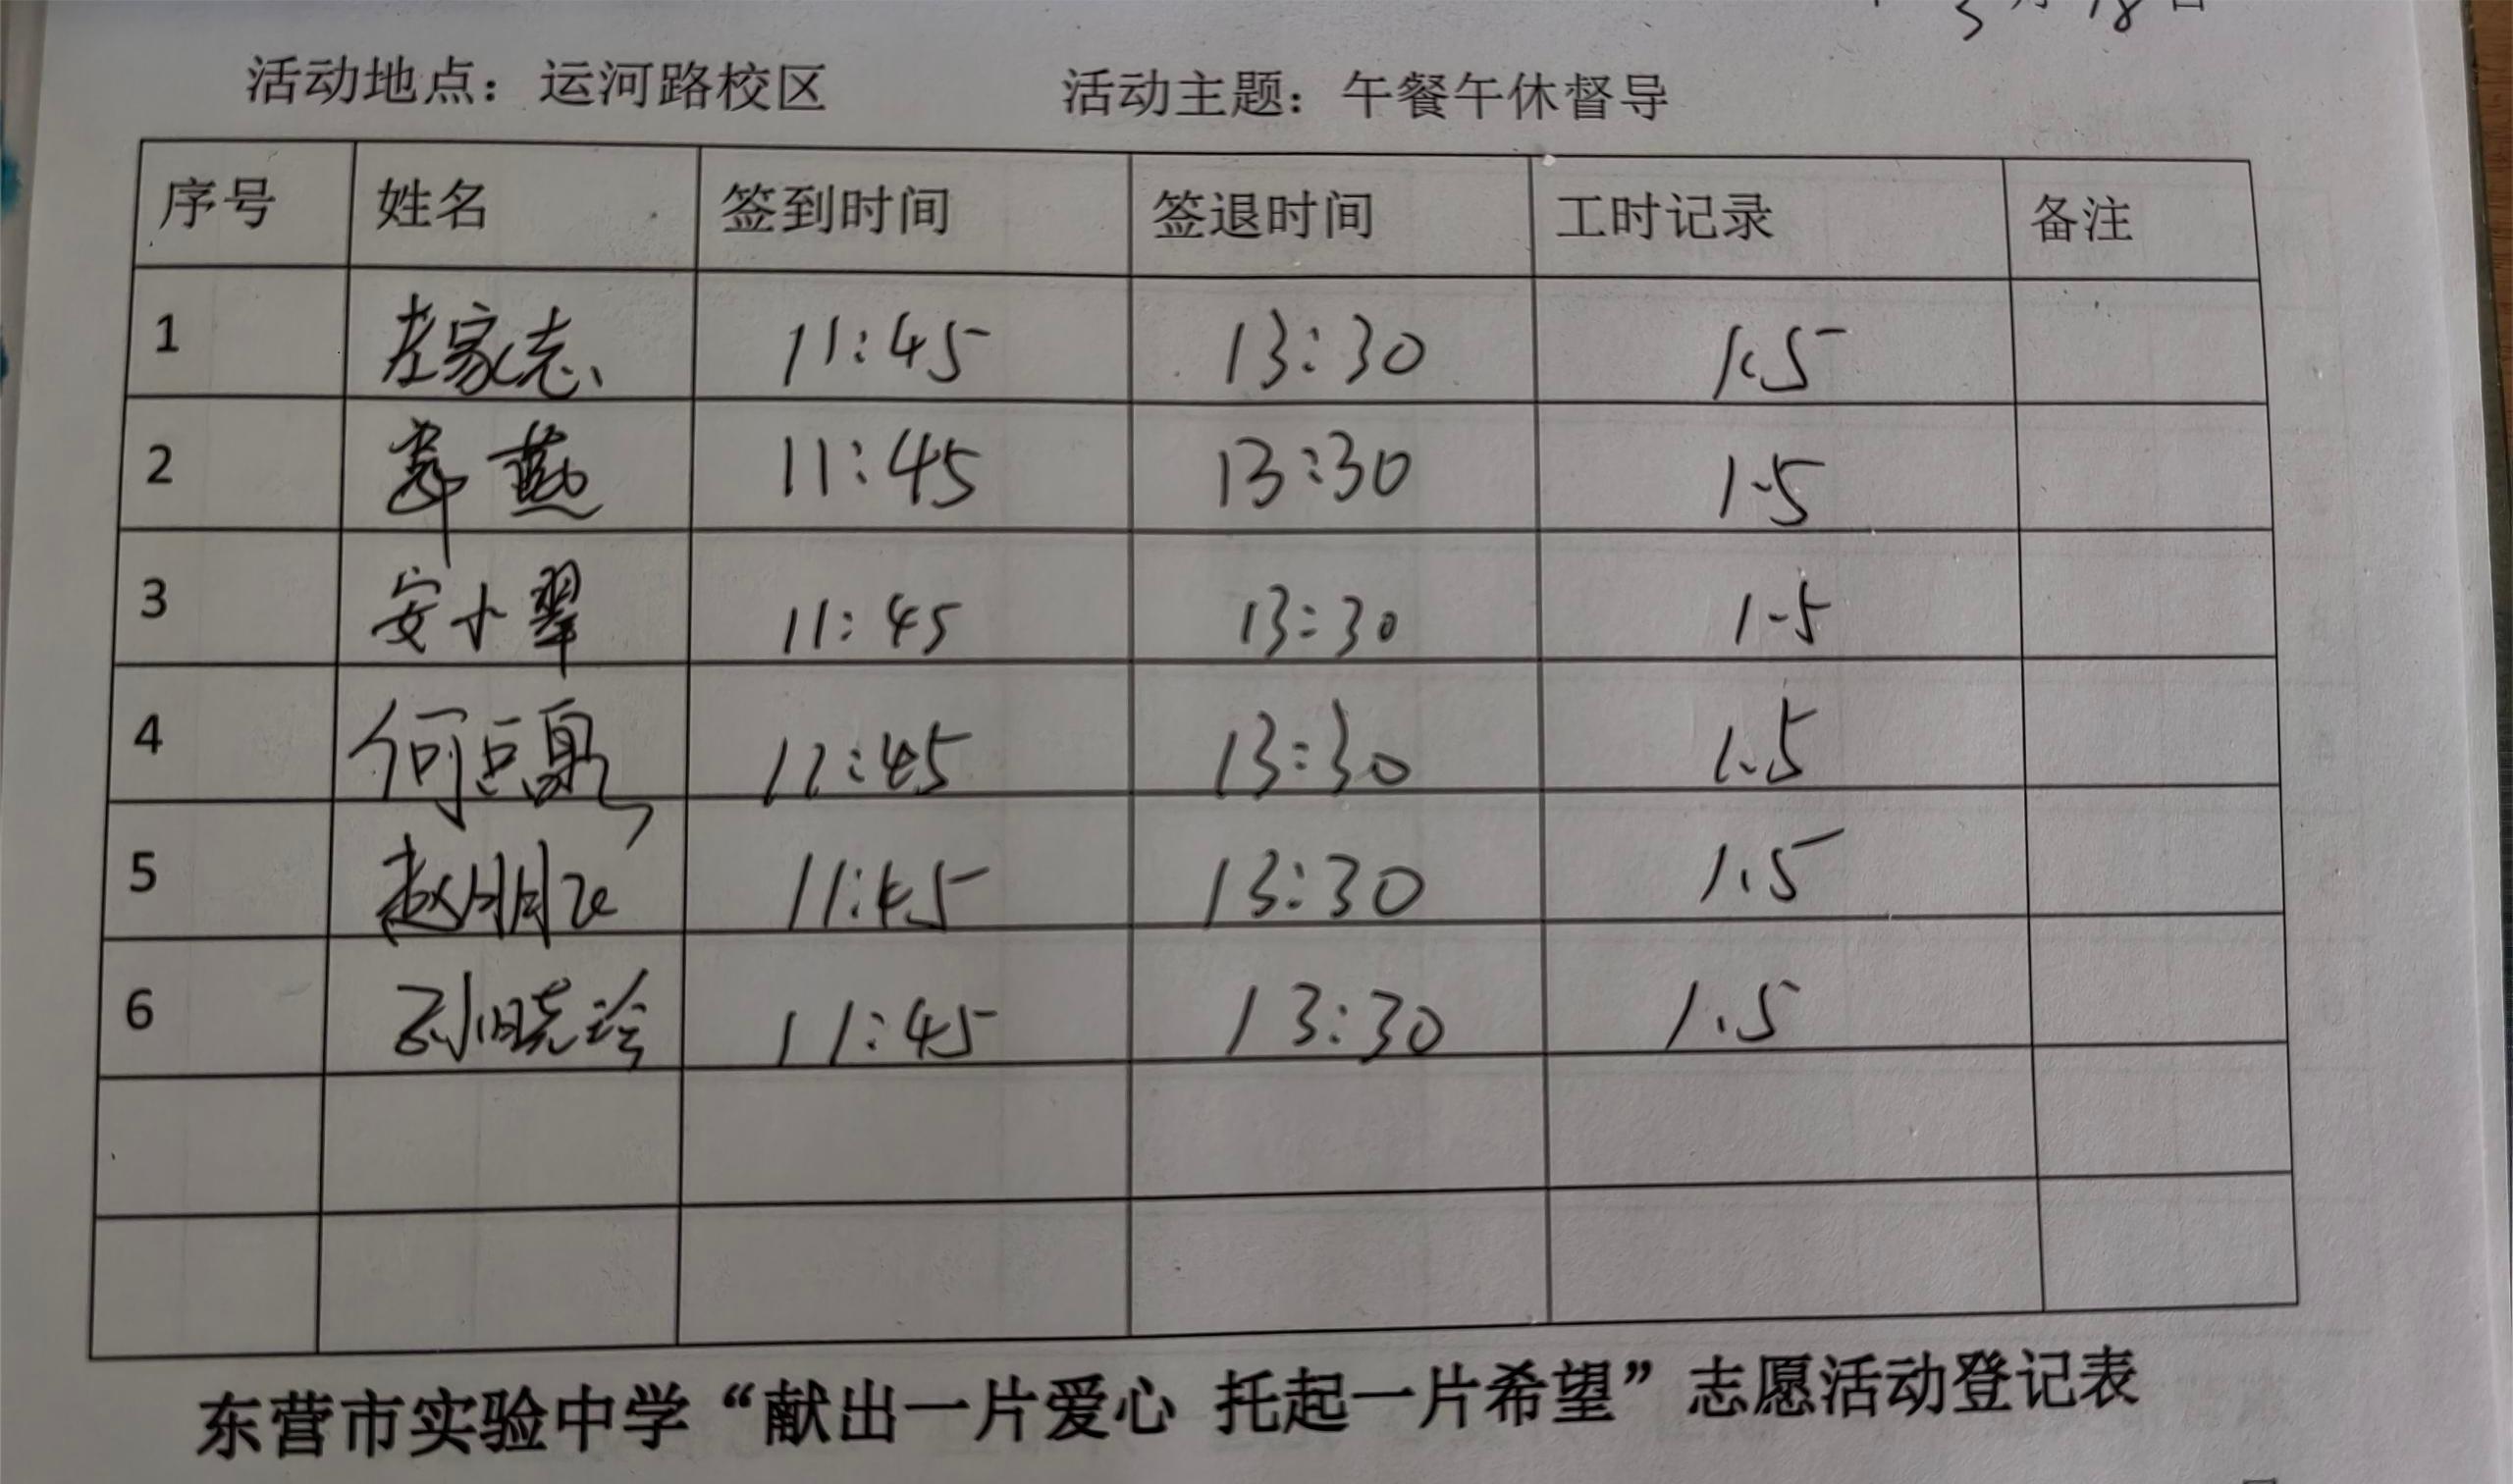 3月18日
活动地点：运河路校区 活动主题：午餐午休督导
序号 姓名 签到时间 签退时间 工时记录 备注
1 左家志 11:45 13:30 1.5
2 燕 11:45 13:30 1.5
3 安小翠 11:45 13:30 1.5
4 何 11:45 13:30 1.5
5 赵明 11:45 13:30 1.5
6 孙晓玲 11:45 13:30 1.5
东营市实验中学“献出一片爱心 托起一片希望”志愿活动登记表